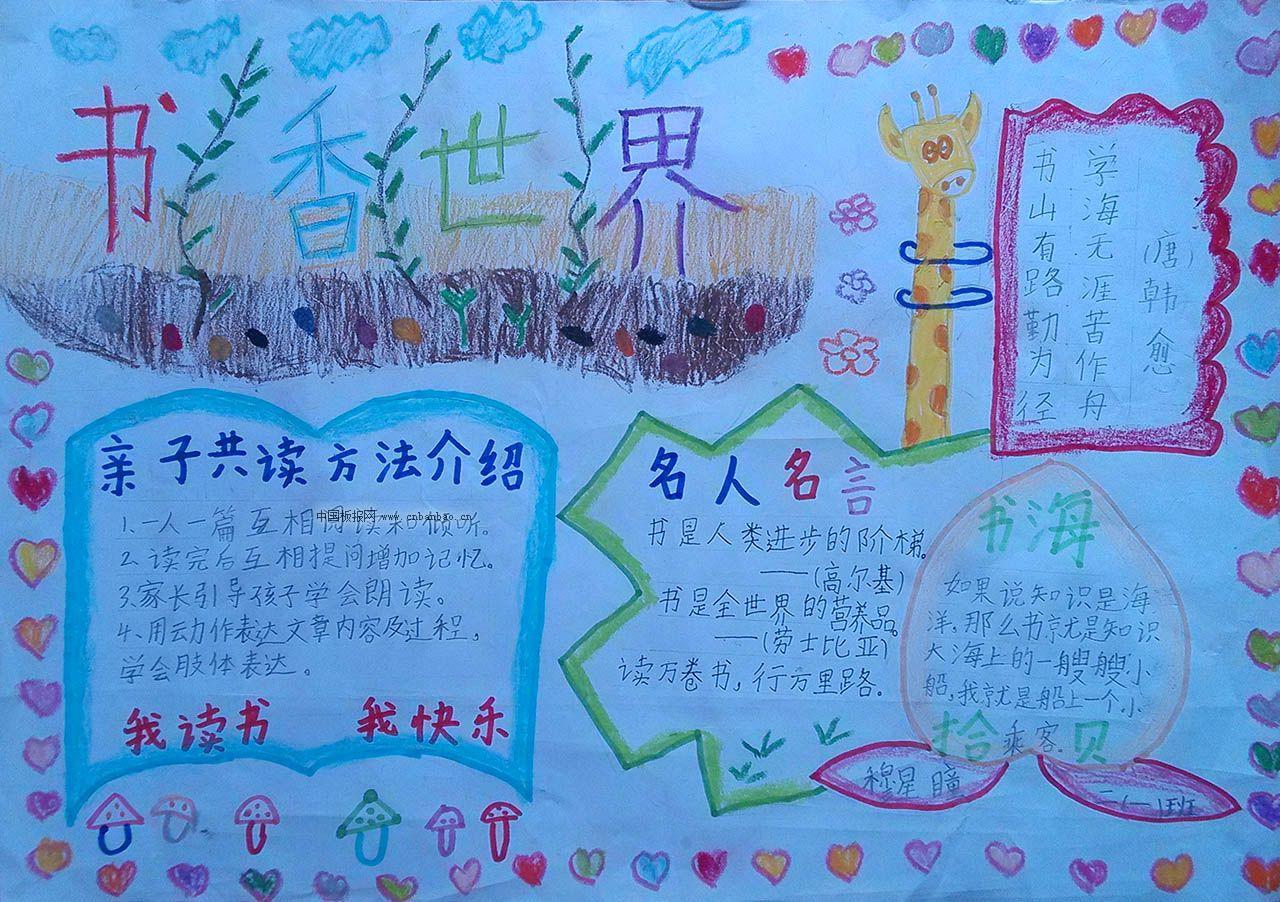 书香世界
学海无涯苦作舟
书山有路勤为径
(唐)韩愈
亲子共读方法介绍
1.一人一篇互相阅读和倾听。
中国板报网 www.cnbanbao.cn
2.读完后互相提问增加记忆。
3.家长引导孩子学会朗读。
4.用动作表达文章内容及过程,
学会肢体表达。
我读书 我快乐
名人名言
书是人类进步的阶梯。
——(高尔基)
书是全世界的营养品。
——(劳士比亚)
读万卷书,行万里路.
书海
如果说知识是海
洋,那么书就是知识
大海上的一艘艘小
船,我就是船上一个小
乘客.
拾贝
穆星瞳
二(一)班